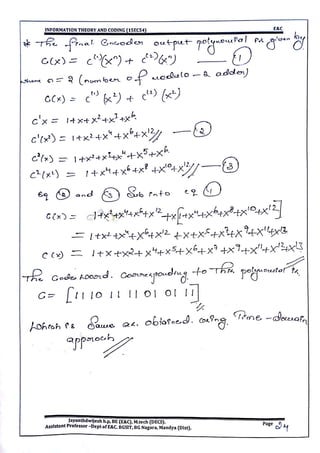 INFORMATION THEORY AND CODING (15EC54) E&C
* The final Encoder output polynomial is given by
C(x) = c⁽¹⁾(xⁿ) + c⁽²⁾(xⁿ) — ①
n = 2 (number of modulo-2 adder)
C(x) = c⁽¹⁾(x²) + c⁽²⁾(x²)
c¹x = 1+x+x²+x³+x⁶
c¹(x²) = 1+x²+x⁴+x⁶+x¹² — ②
c²(x) = 1+x²+x³+x⁴+x⁵+x⁶
c²(x²) = 1+x⁴+x⁶+x⁸+x¹⁰+x¹² — ③
eq ② and ③ Sub into eq ①
C(x) = 1+x²+x⁴+x⁶+x¹²+x[1+x⁴+x⁶+x⁸+x¹⁰+x¹²]
= 1+x²+x⁴+x⁶+x¹²+x+x⁵+x⁷+x⁹+x¹¹+x¹³
C(x) = 1+x+x²+x⁴+x⁵+x⁶+x⁷+x⁹+x¹¹+x¹²+x¹³
The Code word Corresponding to This polynomial is
C= [11 10 11 11 01 01 11]
Which is Same as obtained using Time-domain
approach
Jayanthdwijesh h.p, BE (E&C), M.tech (DECS).
Assistant Professor –Dept of E&C. BGSIT, BG Nagara, Mandya (Dist). Page 24